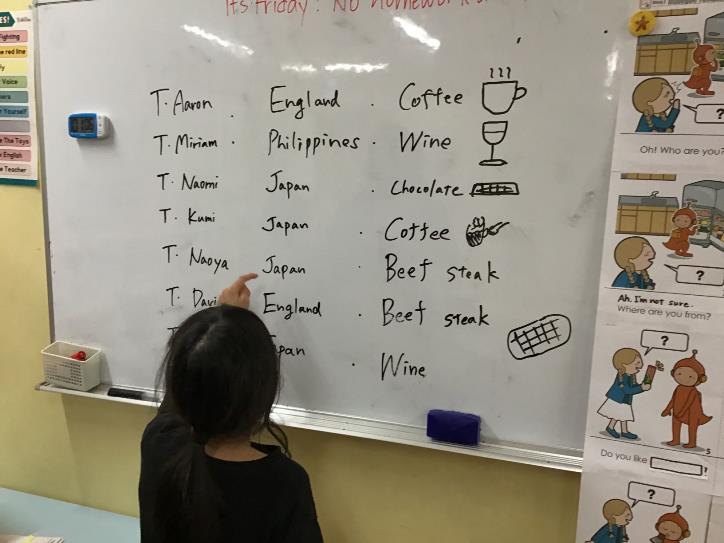 It's friday! No homework
T. Aaron . England . Coffee
T. Miriam . Philippines . Wine
T. Naomi Japan . Chocolate
T. Kumi Japan . Coffee
T. Naoya Japan . Beef steak
T. Davi England . Beef steak
pan . Wine
Fighting
red line
Voice
Yourself
The Toys
English
Teacher
?
Oh! Who are you?
?
Ah. I'm not sure.
Where are you from?
?
5
Do you like ?
?